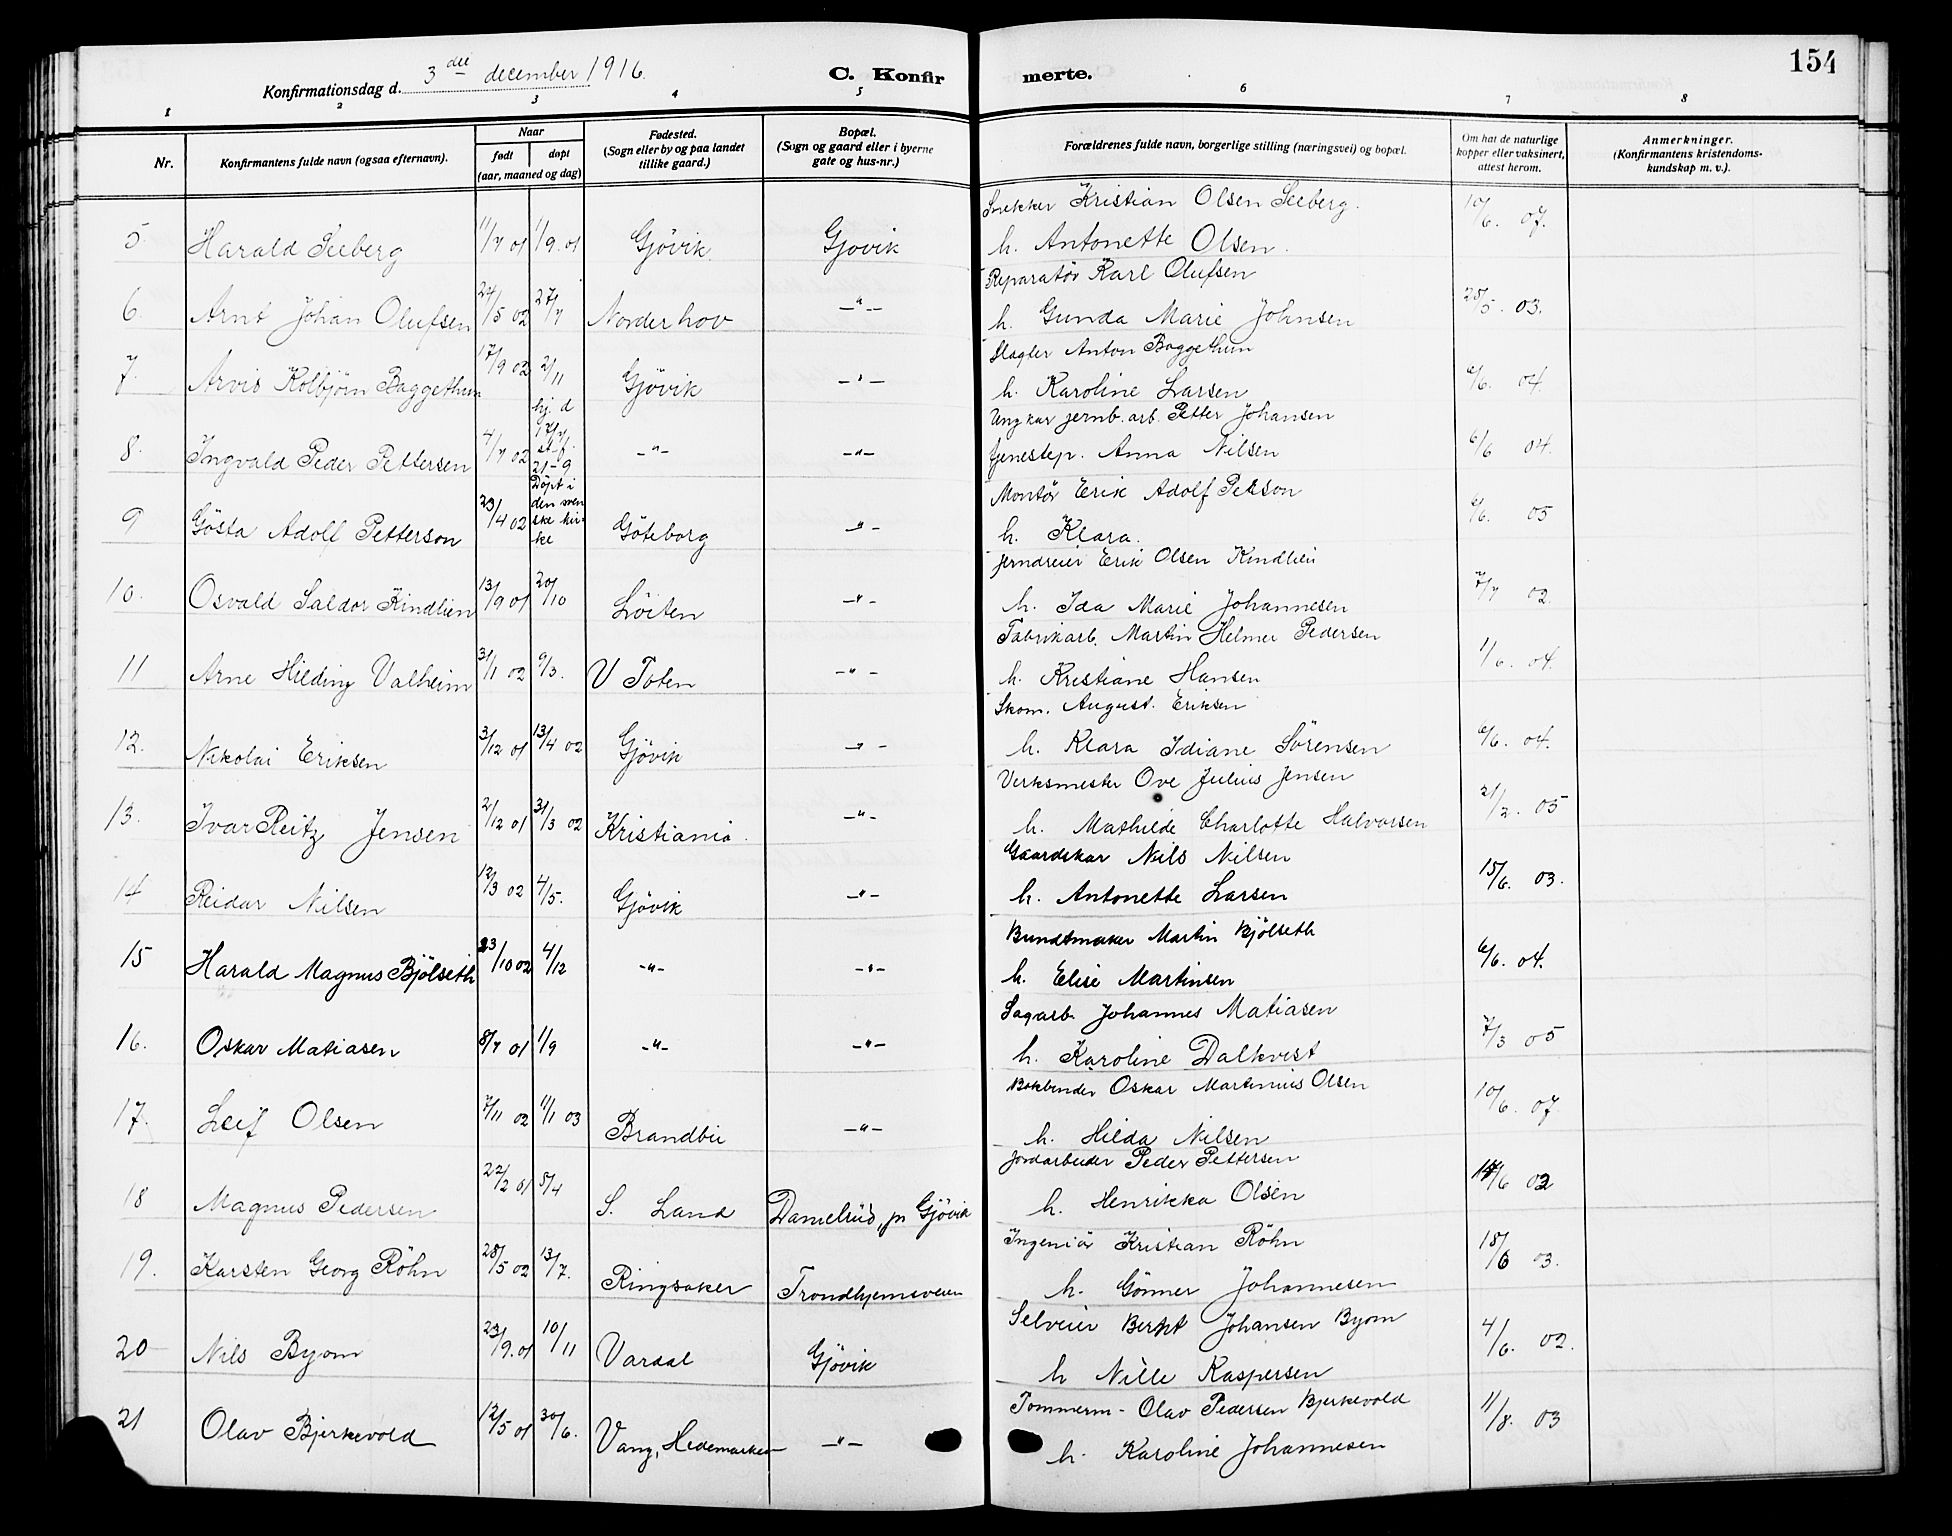 154
Konfirmationsdag d. 3die december 1916.
C. Konfirmerte.
1 2 3 4 5 6 7 8
Nr. Konfirmantens fulde navn (ogsaa efternavn). Naar født døpt (aar, maaned og dag) Fødested. (Sogn eller by og paa landet tillike gaard.) Bopæl. (Sogn og gaard eller i byerne gate og hus-nr.) Forældrenes fulde navn, borgerlige stilling (næringsvei) og bopæl. Om hat de naturlige kopper eller vaksinert, attest herom. Anmerkninger. (Konfirmantens kristendoms-kundskap m. v.).
5. Harald Seeberg 11/7 01 1/9 01 Gjövik Gjövik Snekker Kristian Olsen Seeberg. h. Antonette Olsen. 10/6. 07.
6. Arnt Johan Olufsen 24/5 02 27/7 Norderhov -"- Reparatör Karl Olufsen h. Gunda Marie Johnsen 25/5. 03.
7. Arvid Kolbjörn Baggethun 17/9 02 2/11 Gjövik -"- Slagter Anton Baggethun h. Karoline Larsen 6/6. 04
8. Ingvald Peder Pettersen 4/7 02 hj. d 17/7 st f. 21-9 -"- -"- Ungkar jernb. arb. Petter Johansen tjenestep. Anna Nilsen 6/6 04.
9 Gösta Adolf Petterson 23/4 02 Döpt i den svenske kirke Göteborg -"- Montör Erik Adolf Petterson h. Klara. 6/6. 05
10. Osvald Saldor Kindlien 13/9 01 20/10 Löiten -"- Jerndreier Erik Olsen Kindlien h. Ida Marie Johannesen 7/7 02.
11 Arne Hilding Valheim 31/1 02 9/3. V Toten -"- Fabrikarb. Martin Helmer Pedersen h. Kristiane Hansen 1/6. 04.
12. Nikolai Eriksen 3/12 01 13/4 02 Gjövik -"- Skom. August. Eriksen h. Klara Idiane Sörensen 6/6. 04.
13. Ivar Reitz Jensen 2/12 01 31/3 02 Kristiania. -"- Verksmester Ove Julius Jensen h. Mathilde Charlotte Halvorsen 21/2. 05
14 Reidar Nilsen 12/3 02 4/5. Gjövik -"- Gaardskar Nils Nilsen h. Antonette Larsen 15/6. 03.
15 Harald Magnus Bjölseth 23/10 02 4/12 -"- -"- Bundtmaker Martin Bjölseth h. Elise Martinsen 6/6. 04.
16. Oskar Matiasen 8/7 01 1/9 -"- -"- Sagarb. Johannes Matiasen h. Karoline Dalkvist 7/3 05
17. Leif Olsen 7/11 02 11/1 03 Brandbu -"- Bokbinder Oskar Martinius Olsen h. Hilda Nilsen 10/6. 07.
18 Magnus Pedersen 22/2 01 5/4 S. Land Danielsrud, pr Gjövik Jordarbeider Peder Pettersen h. Henrikka Olsen 14/6 02
19. Karsten Georg Röhn 28/5 02 13/7. Ringsaker Trondhjemsveien Ingeniör Kristian Röhn h. Gönner Johannesen 18/6 03.
20 Nils Byom 23/9. 01 10/11 Vardal Gjövik Selveier Bernt Johansen Byom h Nille Kaspersen 4/6. 02.
21 Olav Bjerkevold 12/5 01 30/6. Vang, Hedemarken -"- Tommerm- Olav Pedersen Bjerkevold h. Karoline Johannesen 11/8. 03